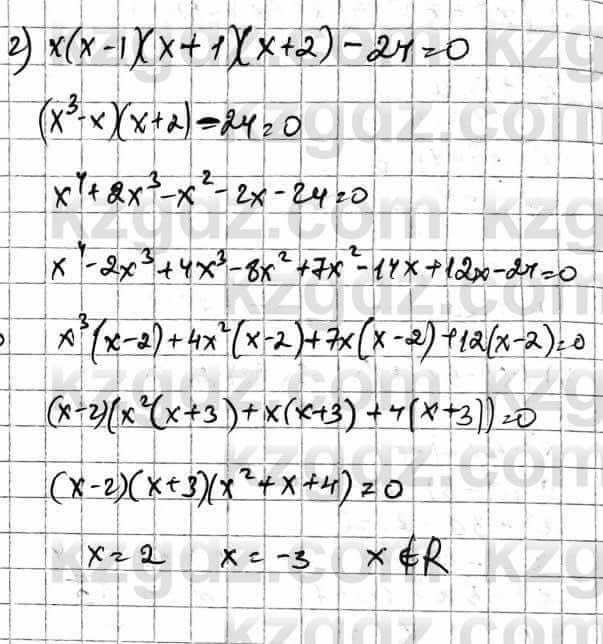 2) x(x-1)(x+1)(x+2)-24=0
(x³-x)(x+2)-24=0
x⁴+2x³-x²-2x-24=0
x⁴-2x³+4x³-8x²+7x²-14x+12x-24=0
x³(x-2)+4x²(x-2)+7x(x-2)+12(x-2)=0
(x-2)(x²(x+3)+x(x+3)+4(x+3))=0
(x-2)(x+3)(x²+x+4)=0
x=2 x=-3 x∉R